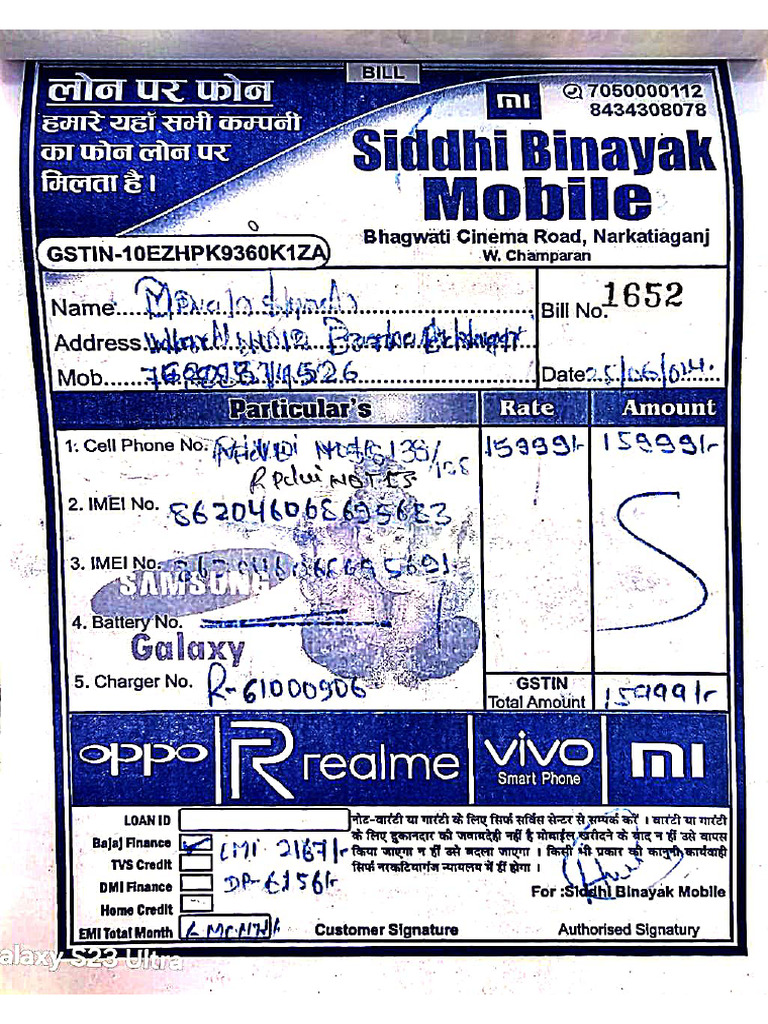 BILL
लोन पर फोन
हमारे यहाँ सभी कम्पनी
का फोन लोन पर
मिलता है।
mi
7050000112
8434308078
Siddhi Binayak
Mobile
Bhagwati Cinema Road, Narkatiaganj
W. Champaran
GSTIN-10EZHPK9360K1ZA
Name
Bill No. 1652
Address
Mob.
Date 25/06/024
Particular's Rate Amount
1: Cell Phone No. 15999/- 15999/-
Redmi NOTE
2. IMEI No. 862046068695683
3. IMEI No.
SAMSUNG
4. Battery No.
Galaxy
5. Charger No. R-61000906
GSTIN
Total Amount 15999/-
oppo
R realme
vivo
Smart Phone
mi
LOAN ID
Bajaj Finance EMI 2167/-
TVS Credit
DMI Finance DP-6156/-
Home Credit
EMI Total Month
नोट-वारंटी या गारंटी के लिए सिर्फ सर्विस सेन्टर से सम्पर्क करें । वारंटी या गारंटी
के लिए दुकानदार की जवाबदेही नहीं है मोबाईल खरीदने के बाद न हीं उसे वापस
किया जाएगा न हीं उसे बदला जाएगा । किसी भी प्रकार की कानूनी कार्यवाही
सिर्फ नरकटियागंज न्यायलय में हीं होगा ।
For :Siddhi Binayak Mobile
Customer Signature
Authorised Signatury
Galaxy S23 Ultra